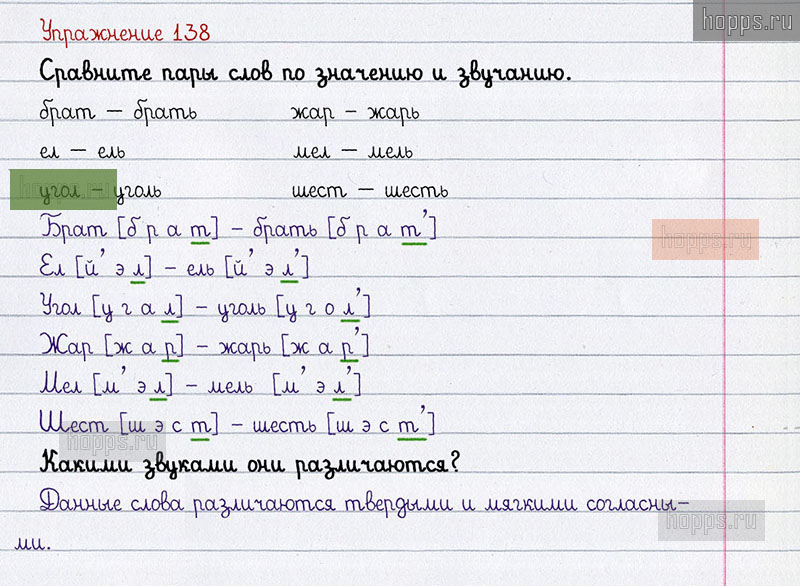 hopps.ru
Упражнение 138
Сравните пары слов по значению и звучанию.
брат – брать жар – жарь
ел – ель мел – мель
угол – уголь шест – шесть
Брат [б р а т] – брать [б р а т']
hopps.ru
Ел [й' э л] – ель [й' э л']
Угол [у г а л] – уголь [у г о л']
Жар [ж а р] – жарь [ж а р']
Мел [м' э л] – мель [м' э л']
Шест [ш э с т] – шесть [ш э с т']
hopps.ru
Какими звуками они различаются?
Данные слова различаются твердыми и мягкими согласны-
hopps.ru
ми.